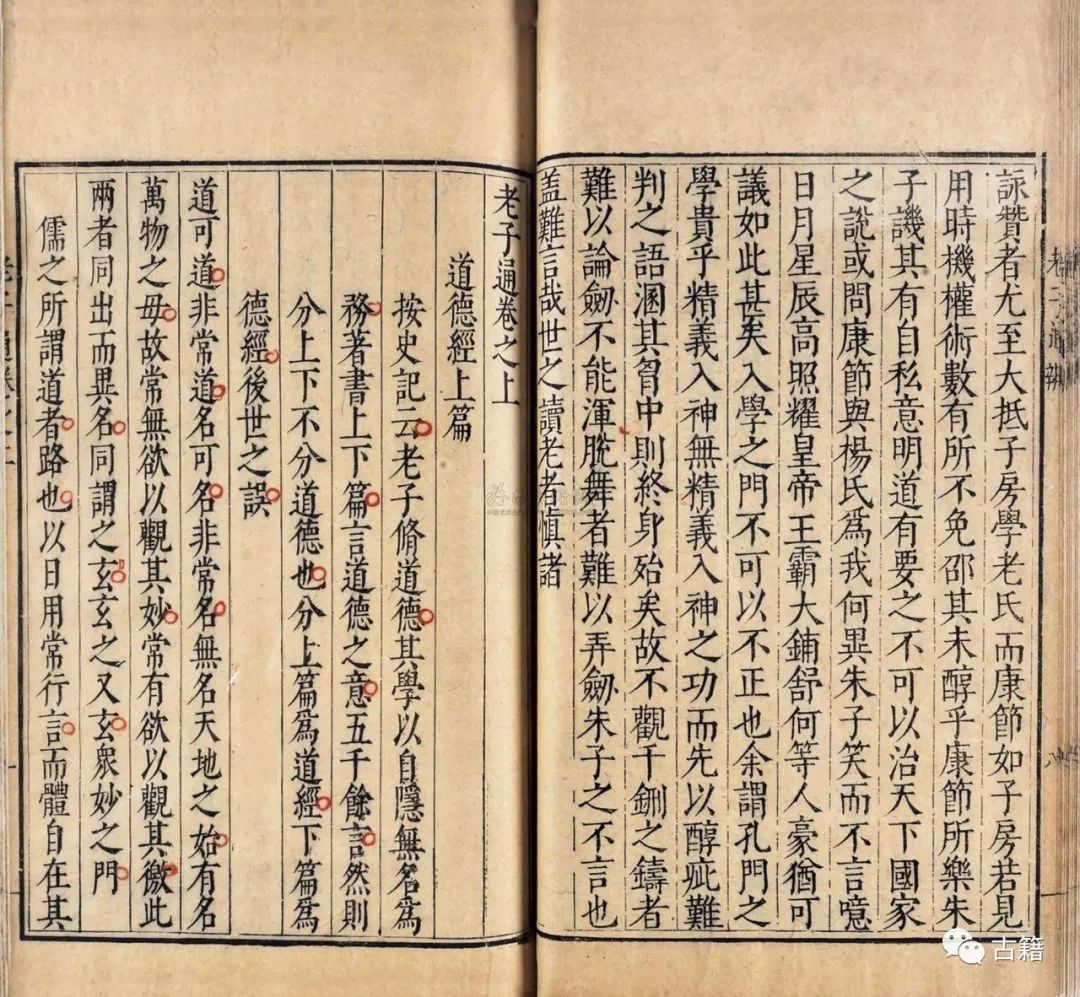 詠贊者尤至大抵子房學老氏而康節如子房若見
用時機權術數有所不免邵其未醇乎康節所樂朱
子譏其有自私意明道有要之不可以治天下國家
之說或問康節與楊氏為我何異朱子笑而不言噫
日月星辰高照耀皇帝王霸大鋪舒何等人豪猶可
議如此甚矣入學之門不可以不正也余謂孔門之
學貴乎精義入神無精義入神之功而先以醇疵難
判之語溷其胷中則終身殆矣故不觀千鉶之鑄者
難以論劒不能渾脫舞者難以弄劒朱子之不言也
盖難言哉世之讀老者慎諸
老子通卷之上
道德經上篇
按史記云老子脩道德其學以自隱無名為
務著書上下篇言道德之意五千餘言然則
分上下不分道德也分上篇為道經下篇為
德經後世之誤
道可道非常道名可名非常名無名天地之始有名
萬物之母故常無欲以觀其妙常有欲以觀其徼此
兩者同出而異名同謂之玄玄之又玄衆妙之門
儒之所謂道者路也以日用常行言而體自在其
老子通辯
八
古籍